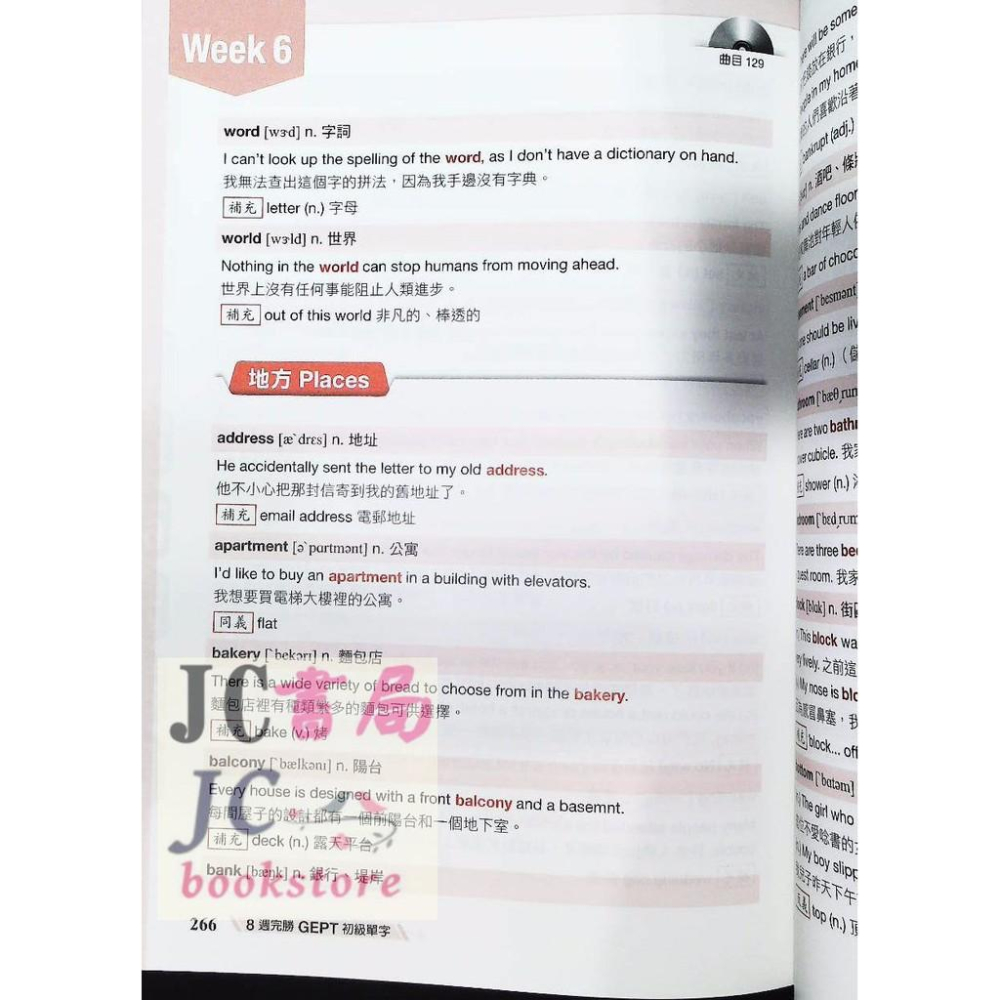 Week 6
曲目 129
word [wɝd] n. 字詞
I can't look up the spelling of the word, as I don't have a dictionary on hand.
我無法查出這個字的拼法，因為我手邊沒有字典。
補充 letter (n.) 字母
world [wɝld] n. 世界
Nothing in the world can stop humans from moving ahead.
世界上沒有任何事能阻止人類進步。
補充 out of this world 非凡的、棒透的
地方 Places
address [æˋdrɛs] n. 地址
He accidentally sent the letter to my old address.
他不小心把那封信寄到我的舊地址了。
補充 email address 電郵地址
apartment [əˋpɑrtmənt] n. 公寓
I'd like to buy an apartment in a building with elevators.
我想要買電梯大樓裡的公寓。
同義 flat
bakery [ˋbekərɪ] n. 麵包店
There is a wide variety of bread to choose from in the bakery.
麵包店裡有種類繁多的麵包可供選擇。
補充 bake (v.) 烤
balcony [ˋbælkənɪ] n. 陽台
Every house is designed with a front balcony and a basemnt.
每間屋子的設計都有一個前陽台和一個地下室。
補充 deck (n.) 露天平台
bank [bæŋk] n. 銀行、堤岸
266 8 週完勝 GEPT 初級單字
JC書局
JC
bookstore
will be some
放在銀行，
in my home
人們喜歡沿著
(adj.)
n. 酒吧、條
and dance floor
a bar of choc
[ˋbesmənt]
should be liv
cellar (n.)
[ˋbæθ
are two bath
cubicle. 我
shower (n.)
[ˋbɛd
are three be
room. 我
[blɑk] n. 街
This block wa
lively. 之前這
My nose is blo
感冒鼻塞，我
block... of
[ˋbɑtəm]
The girl who
不愛唸書的
My boy slipp
兒子昨天下午
top (n.) 頂